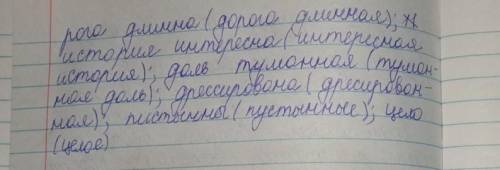 рога длинна (дорога длинная);
история интересна (интересная
история); даль туманная (туман-
ная даль); дрессирована (дресирован-
ная); пустынны (пустынные); цело
(целое)